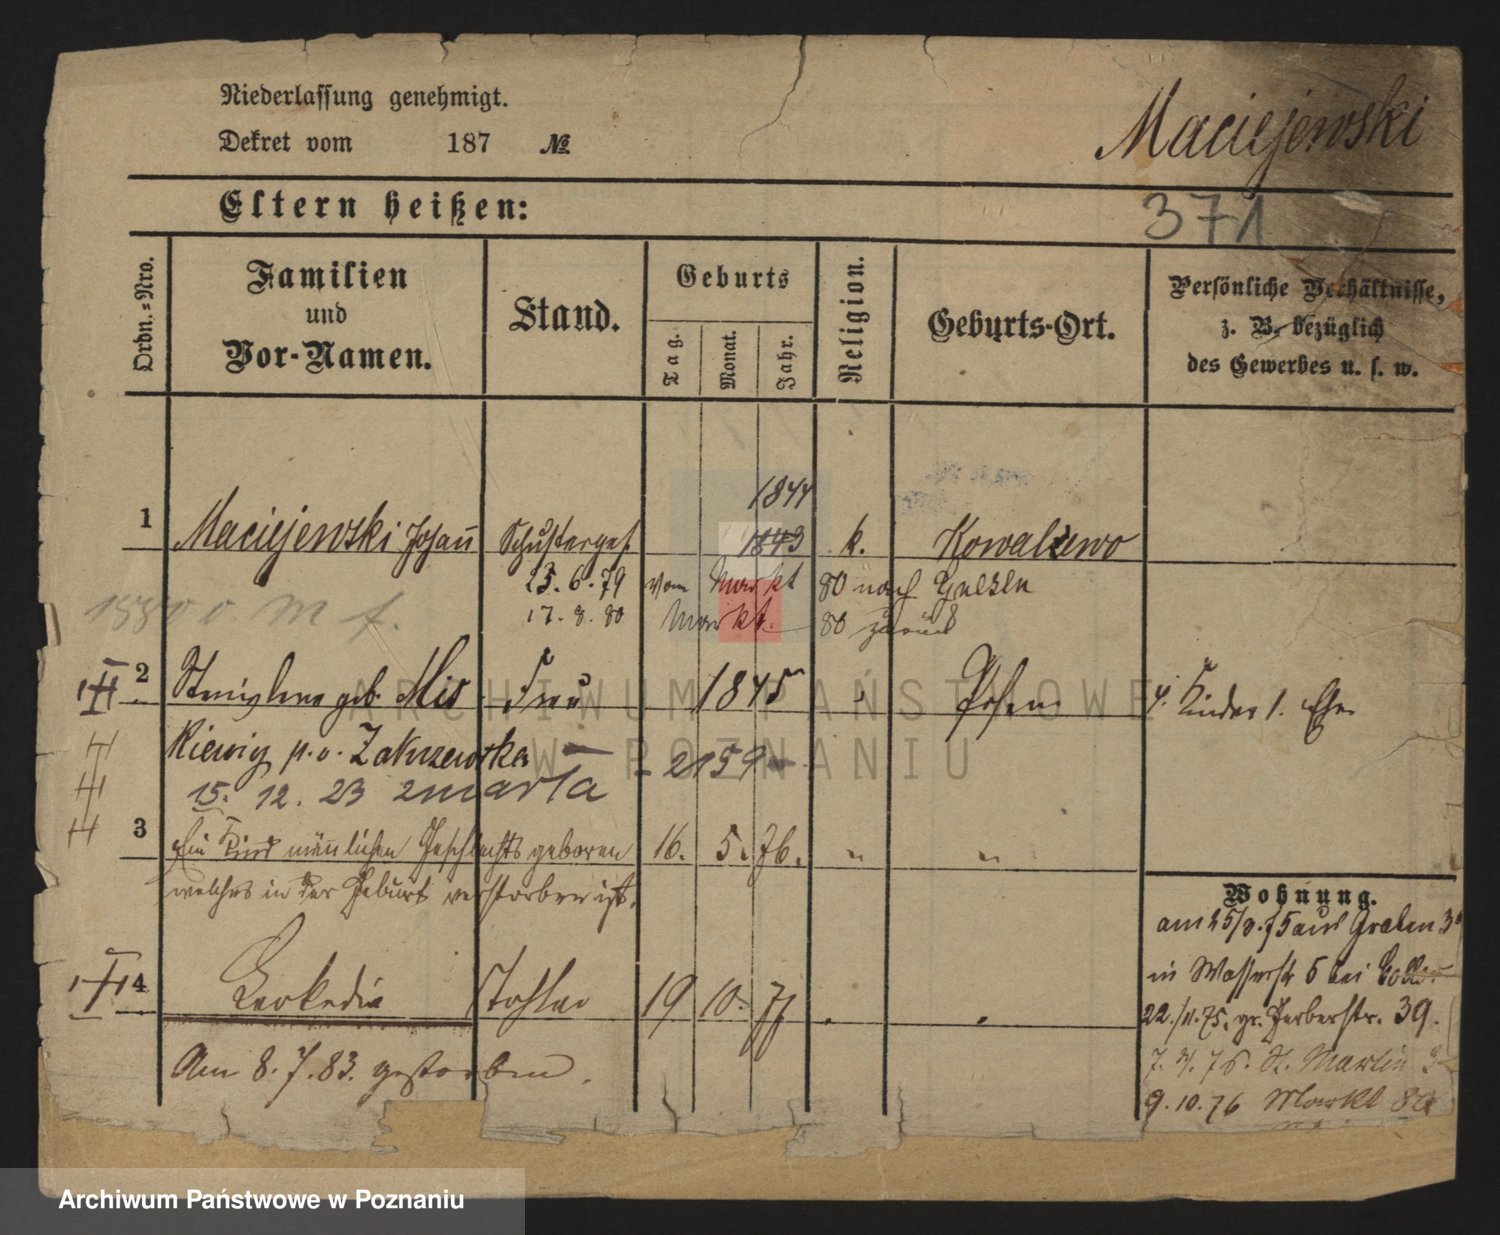 Niederlassung genehmigt.
Dekret vom 187 №
Maciejewski
Eltern heißen:
371
Ordn.-Nro.
Familien
und
Vor-Namen.
Stand.
Geburts
Tag.
Monat.
Jahr.
Religion.
Geburts-Ort.
Persönliche Verhältnisse,
z. B. bezüglich
des Gewerbes u. s. w.
1844
1 Maciejewski Johann Schusterges. 1843 k. Kowalewo
23.6.79 vom Markt 80 nach Gnesen
17.8.80 Markt 80 zurück
2 geb. Mis Frau 1845 " Posen 4 Kinder 1. Ehe
p. v. Zakrzewska 2159
15. 12. 23 zmarła
3 Ein Kind männlichen Geschlechts geboren 16. 5. 76. " "
welches in der Geburt verstorben ist.
Wohnung.
am 25/8.75 aus Graben 3
in Wasserstr 5 bei
4 Leokadia Tochter 19 10. 77 " "
22./11.75. gr. Gerberstr. 39.
Am 8.7.83. gestorben.
7. 4. 76. St. Martin
9.10.76 Markt 80
ARCHIWUM PAŃSTWOWE
W POZNANIU
Archiwum Państwowe w Poznaniu